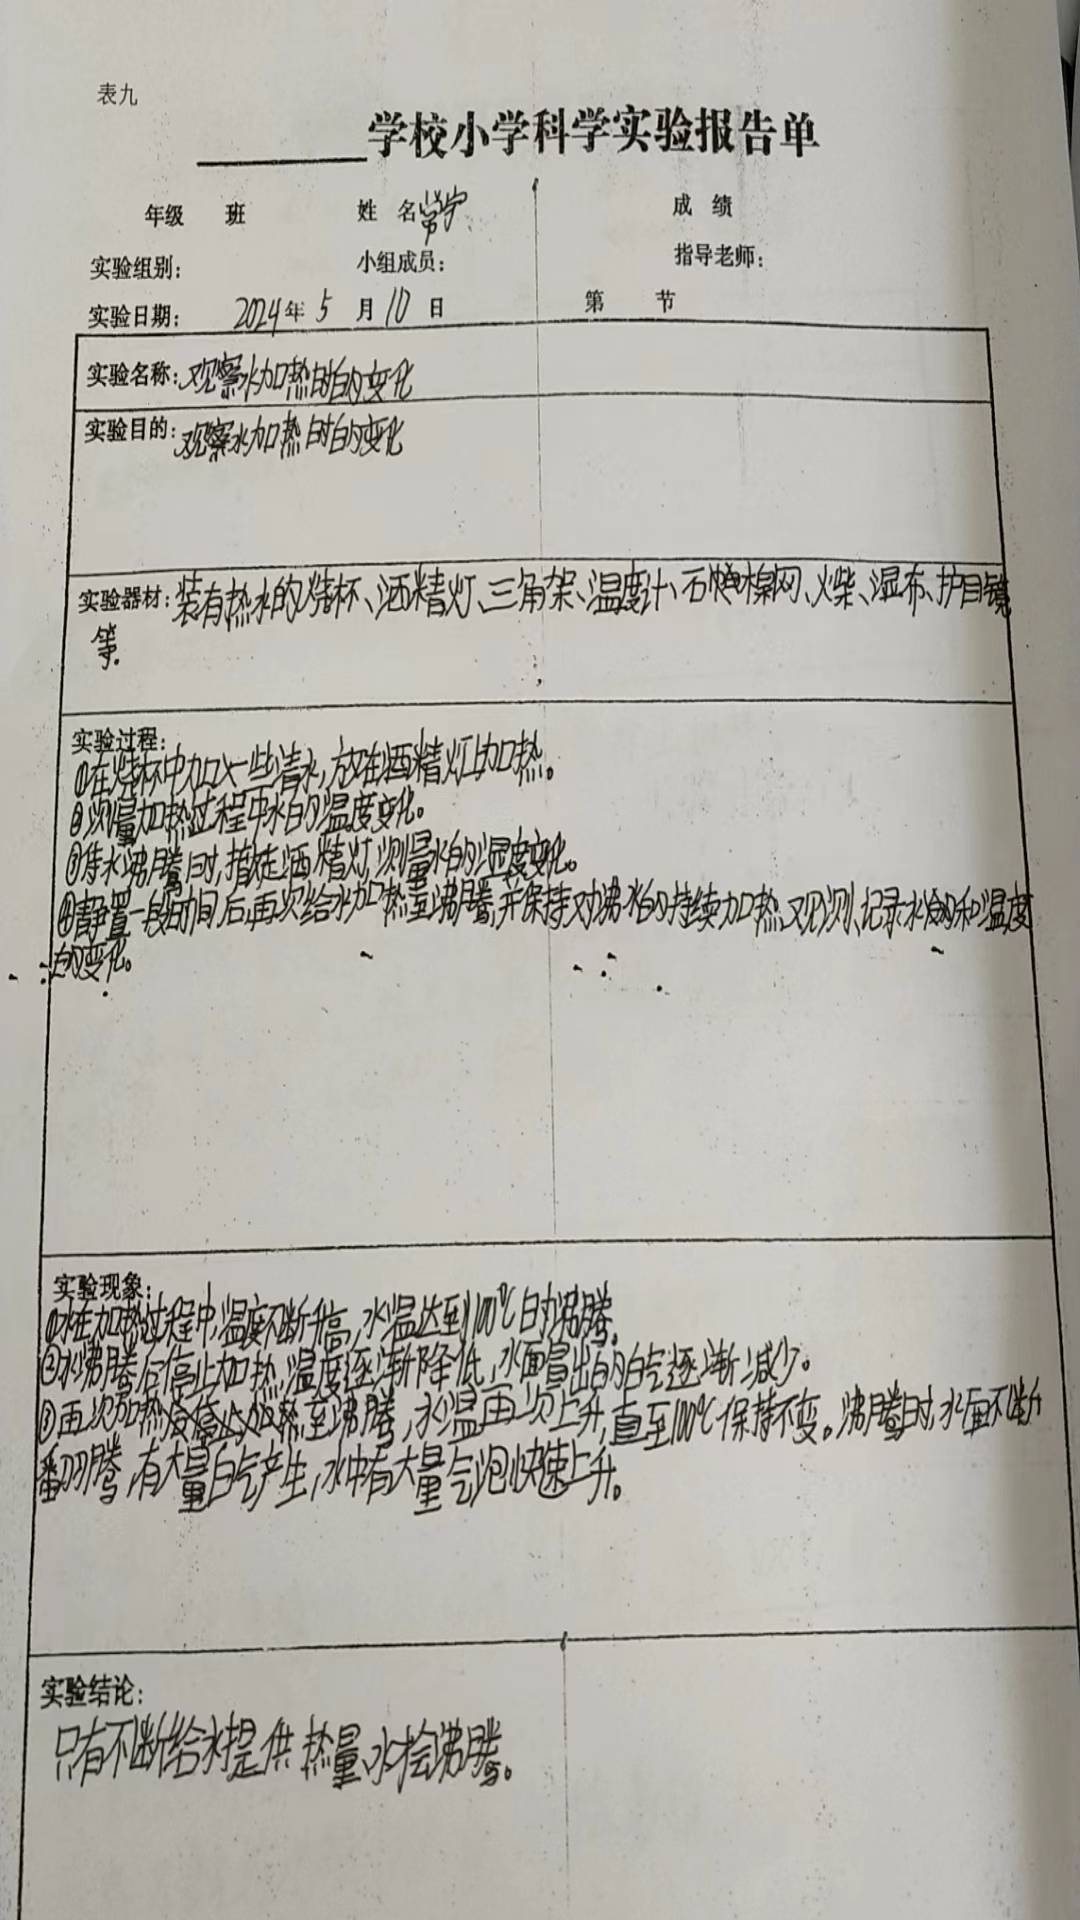 表九
学校小学科学实验报告单
年级 班 姓名 常宁 成绩
实验组别: 小组成员: 指导老师:
实验日期: 2024年5月10日 第 节
实验名称:观察水加热时的变化
实验目的:观察水加热时的变化
实验器材:装有热水的烧杯、酒精灯、三角架、温度计、石棉网、火柴、湿布、护目镜
等.
实验过程:
①在烧杯中加入一些清水,放在酒精灯上加热。
②测量加热过程中水的温度变化。
③待水沸腾时,撤走酒精灯,测量水的温度变化。
④静置一段时间后,再次给水加热量沸腾,并保持对沸水的持续加热,观测、记录水的和温度
的变化。
实验现象:
①水在加热过程中,温度不断升高,水温达到100℃时沸腾.
②水沸腾后停止加热,温度逐渐降低,水面冒出的白气逐渐减少。
③再次加热至沸腾,水温再次上升,直至100℃保持不变。沸腾时,水面不断
翻腾,有大量白气产生,水中有大量气泡快速上升。
实验结论:
只有不断给水提供热量,水会沸腾。